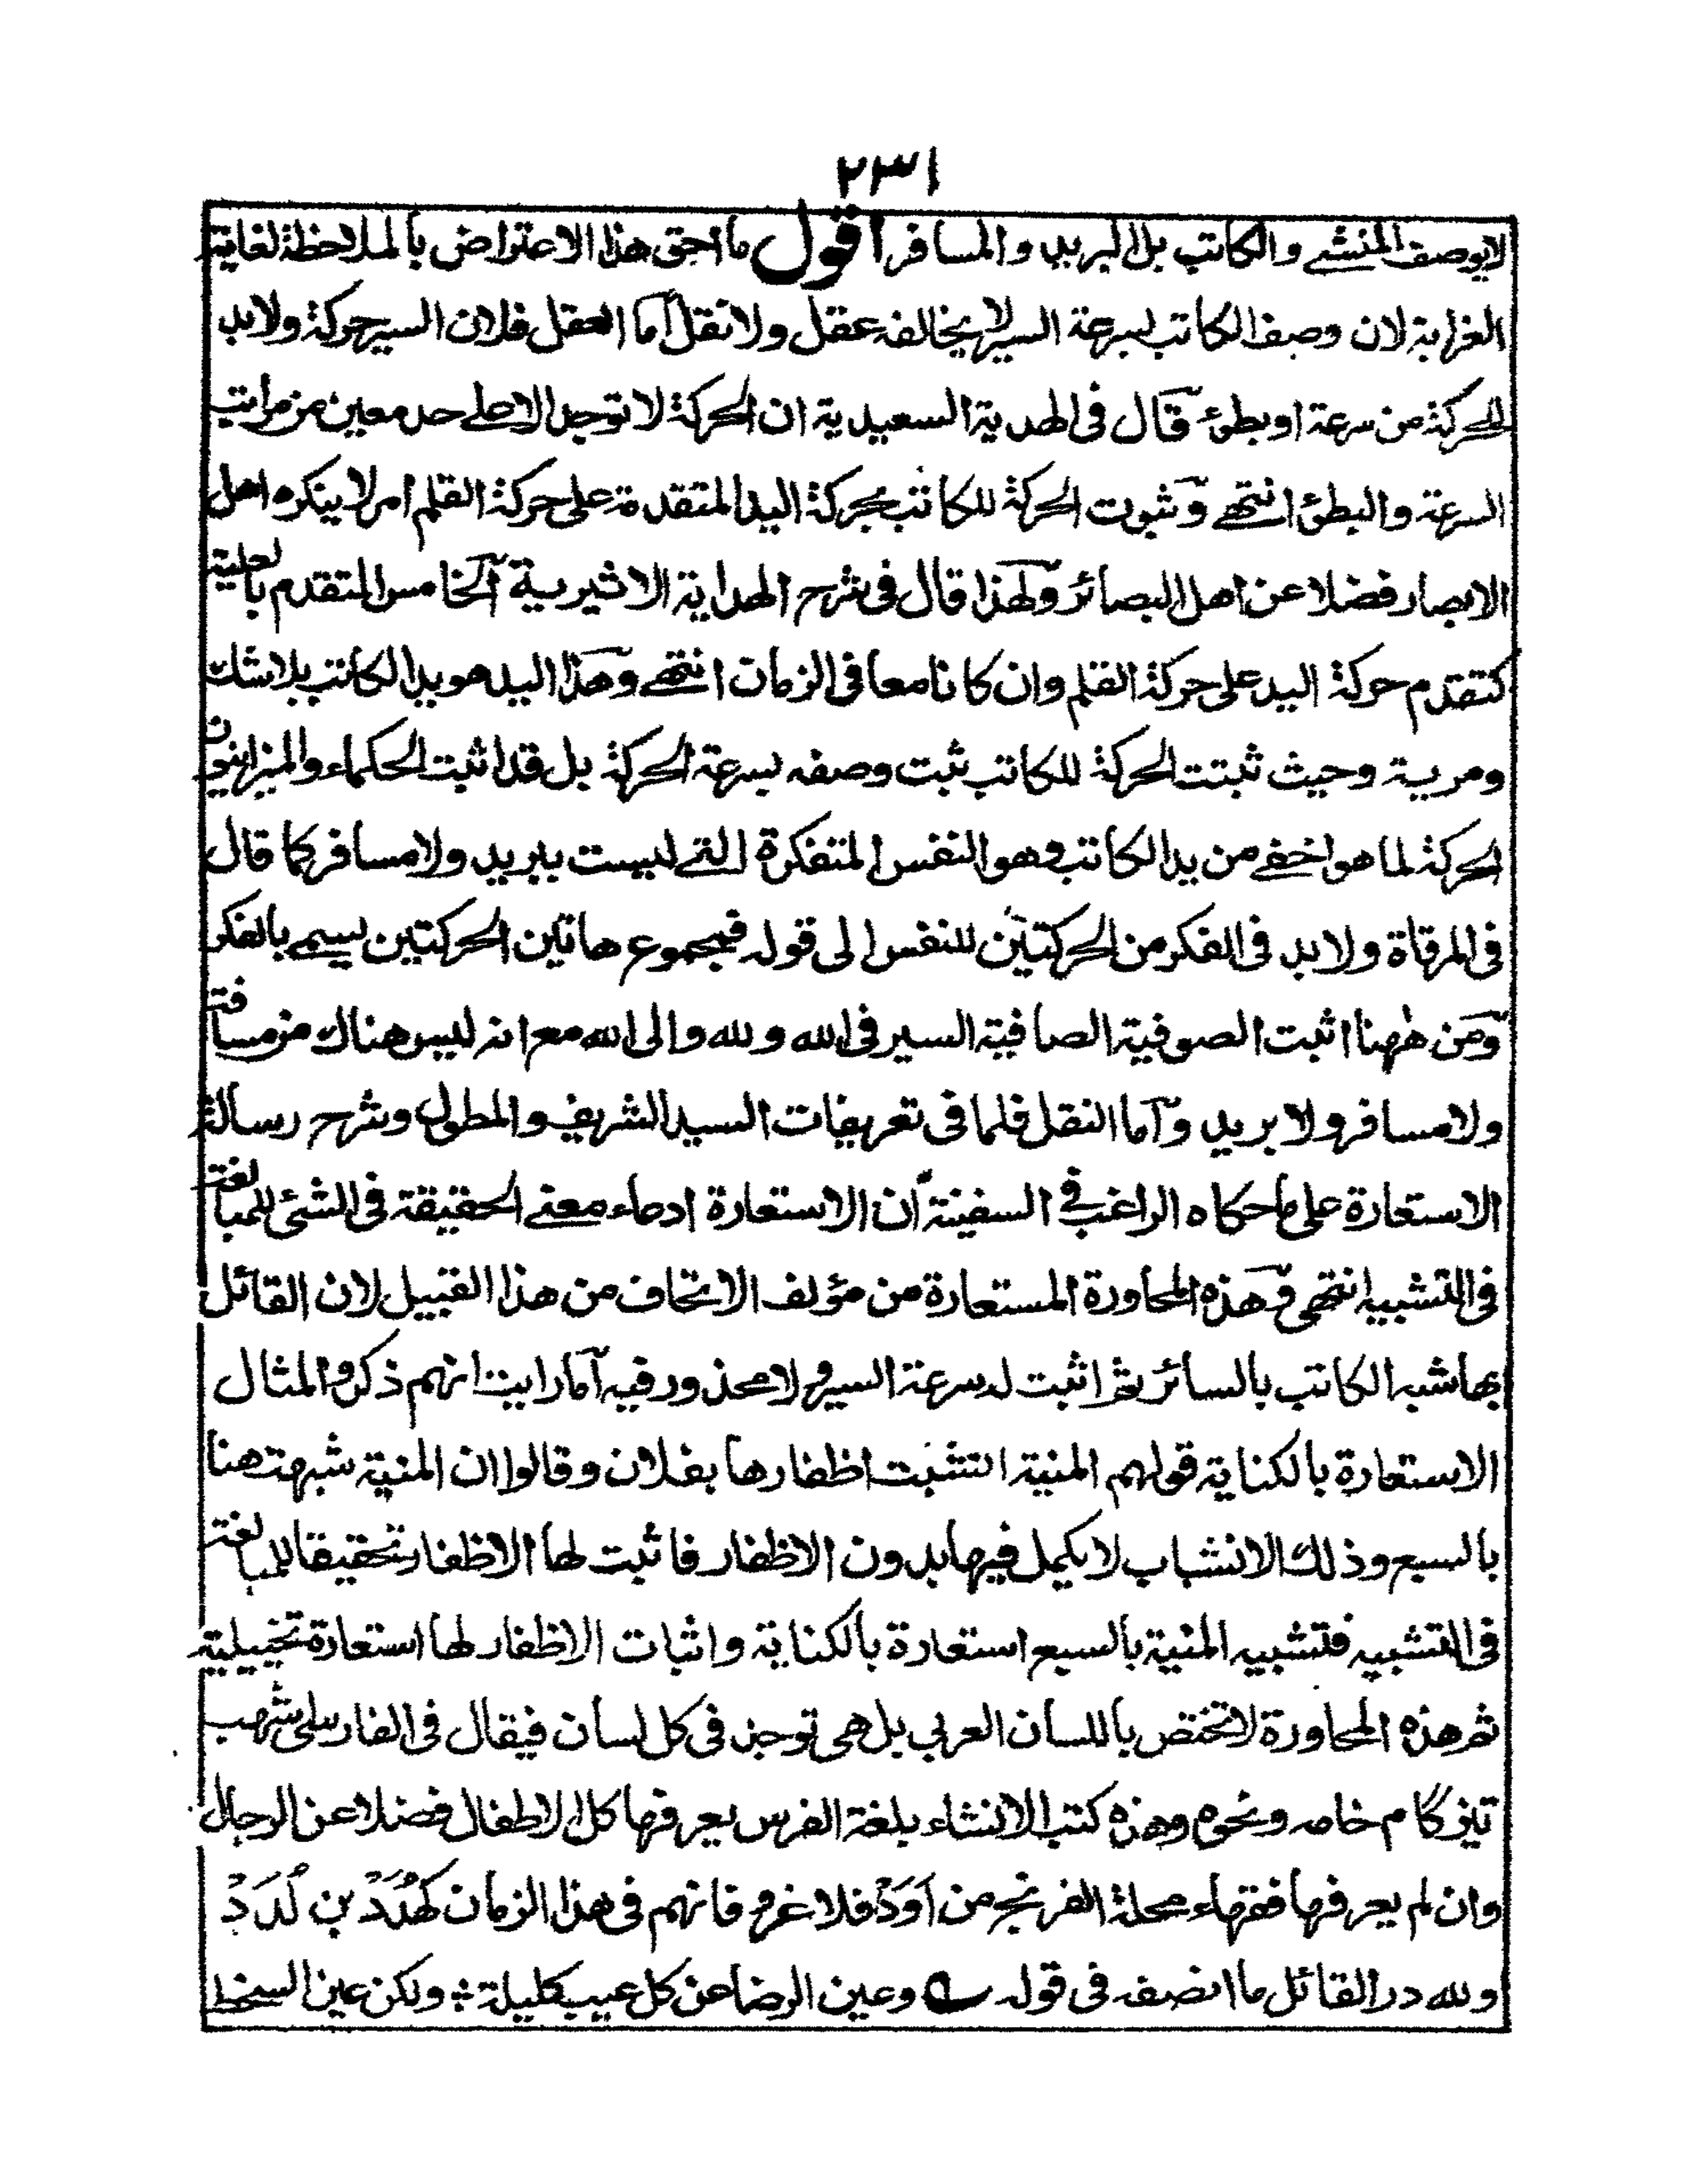 ٢٣١
لا يوصف المنشے والكاتب بل البريد والمسافر اقول ما احق هذا الاعتراض بالملاحظة لغاية
الغرابة لان وصف الكاتب بسرعة السير لا يخالفه عقل ولا نقل اما العقل فلان السير حركة ولا بد
للحركة من سرعة او بطؤ قال فى الهدية السعيدية ان الحركة لا توجد الا على حد معين من مراتب
السرعة والبطؤ انتهے وثبوت الحركة للكاتب بحركة اليد المتقدمة على حركة القلم امر لا ينكره اهل
الابصار فضلا عن اهل البصائر ولهذا قال فى شرح الهداية الاثيرية الخامس المتقدم بالعلية
كتقدم حركة اليد على حركة القلم وان كانا معا فى الزمان انتهے وهذا اليد هو يد الكاتب بلا شك
ومرية وحيث ثبتت الحركة للكاتب ثبت وصفه بسرعة الحركة بل قد اثبت الحكماء والميزانيون
الحركة لما هو اخفے من يد الكاتب وهو النفس المتفكرة التے ليست ببريد ولا مسافر كما قال
فى المرقاة ولا بد فى الفكر من الحركتين للنفس الى قوله فمجموع هاتين الحركتين يسمے بالفكر
ومن ههنا اثبت الصوفية الصافية السير فى الله ولله والى الله مع انه ليس هناك من مسافة
ولا مسافر ولا بريد واما النقل فلما فى تعريفات السيد الشريف والمطول وشرح رسالة
الاستعارة على ما حكاه الراغب فے السفينة ان الاستعارة ادعاء معنے الحقيقة فى الشئ للمبالغة
فى التشبيه انتهى وهذه المحاورة المستعارة من مؤلف الاتحاف من هذا القبيل لان القائل
بها شبه الكاتب بالسائر ثم اثبت له سرعة السير ولا محذور فيه اما رايت انهم ذكروا المثال
الاستعارة بالكناية قولهم المنية انتشبت اظفارها بفلان وقالوا ان المنية شبهت هنا
بالسبع وذلك الانشباب لا يكمل فيها بدون الاظفار فاثبت لها الاظفار تحقيقا للمبالغة
فى التشبيه فتشبيه المنية بالسبع استعارة بالكناية واثبات الاظفار لها استعارة تخييلية
ثم هذه المحاورة لا تختص باللسان العربي بل هى توجد فى كل لسان فيقال فى الفارسى شهب
تيز گام خامه ونحوه وهذه كتب الانشاء بلغة الفرس يعرفها كل الاطفال فضلا عن الرجال
وان لم يعرفها فقهاء محلة الفرنج من اَوَدْ فلا غرو فانهم فى هذا الزمان كهُدَدْ بن لُدَدْ
ولله در القائل ما انصفه فى قوله وعين الرضا عن كل عيب كليلة ولكن عين السخط